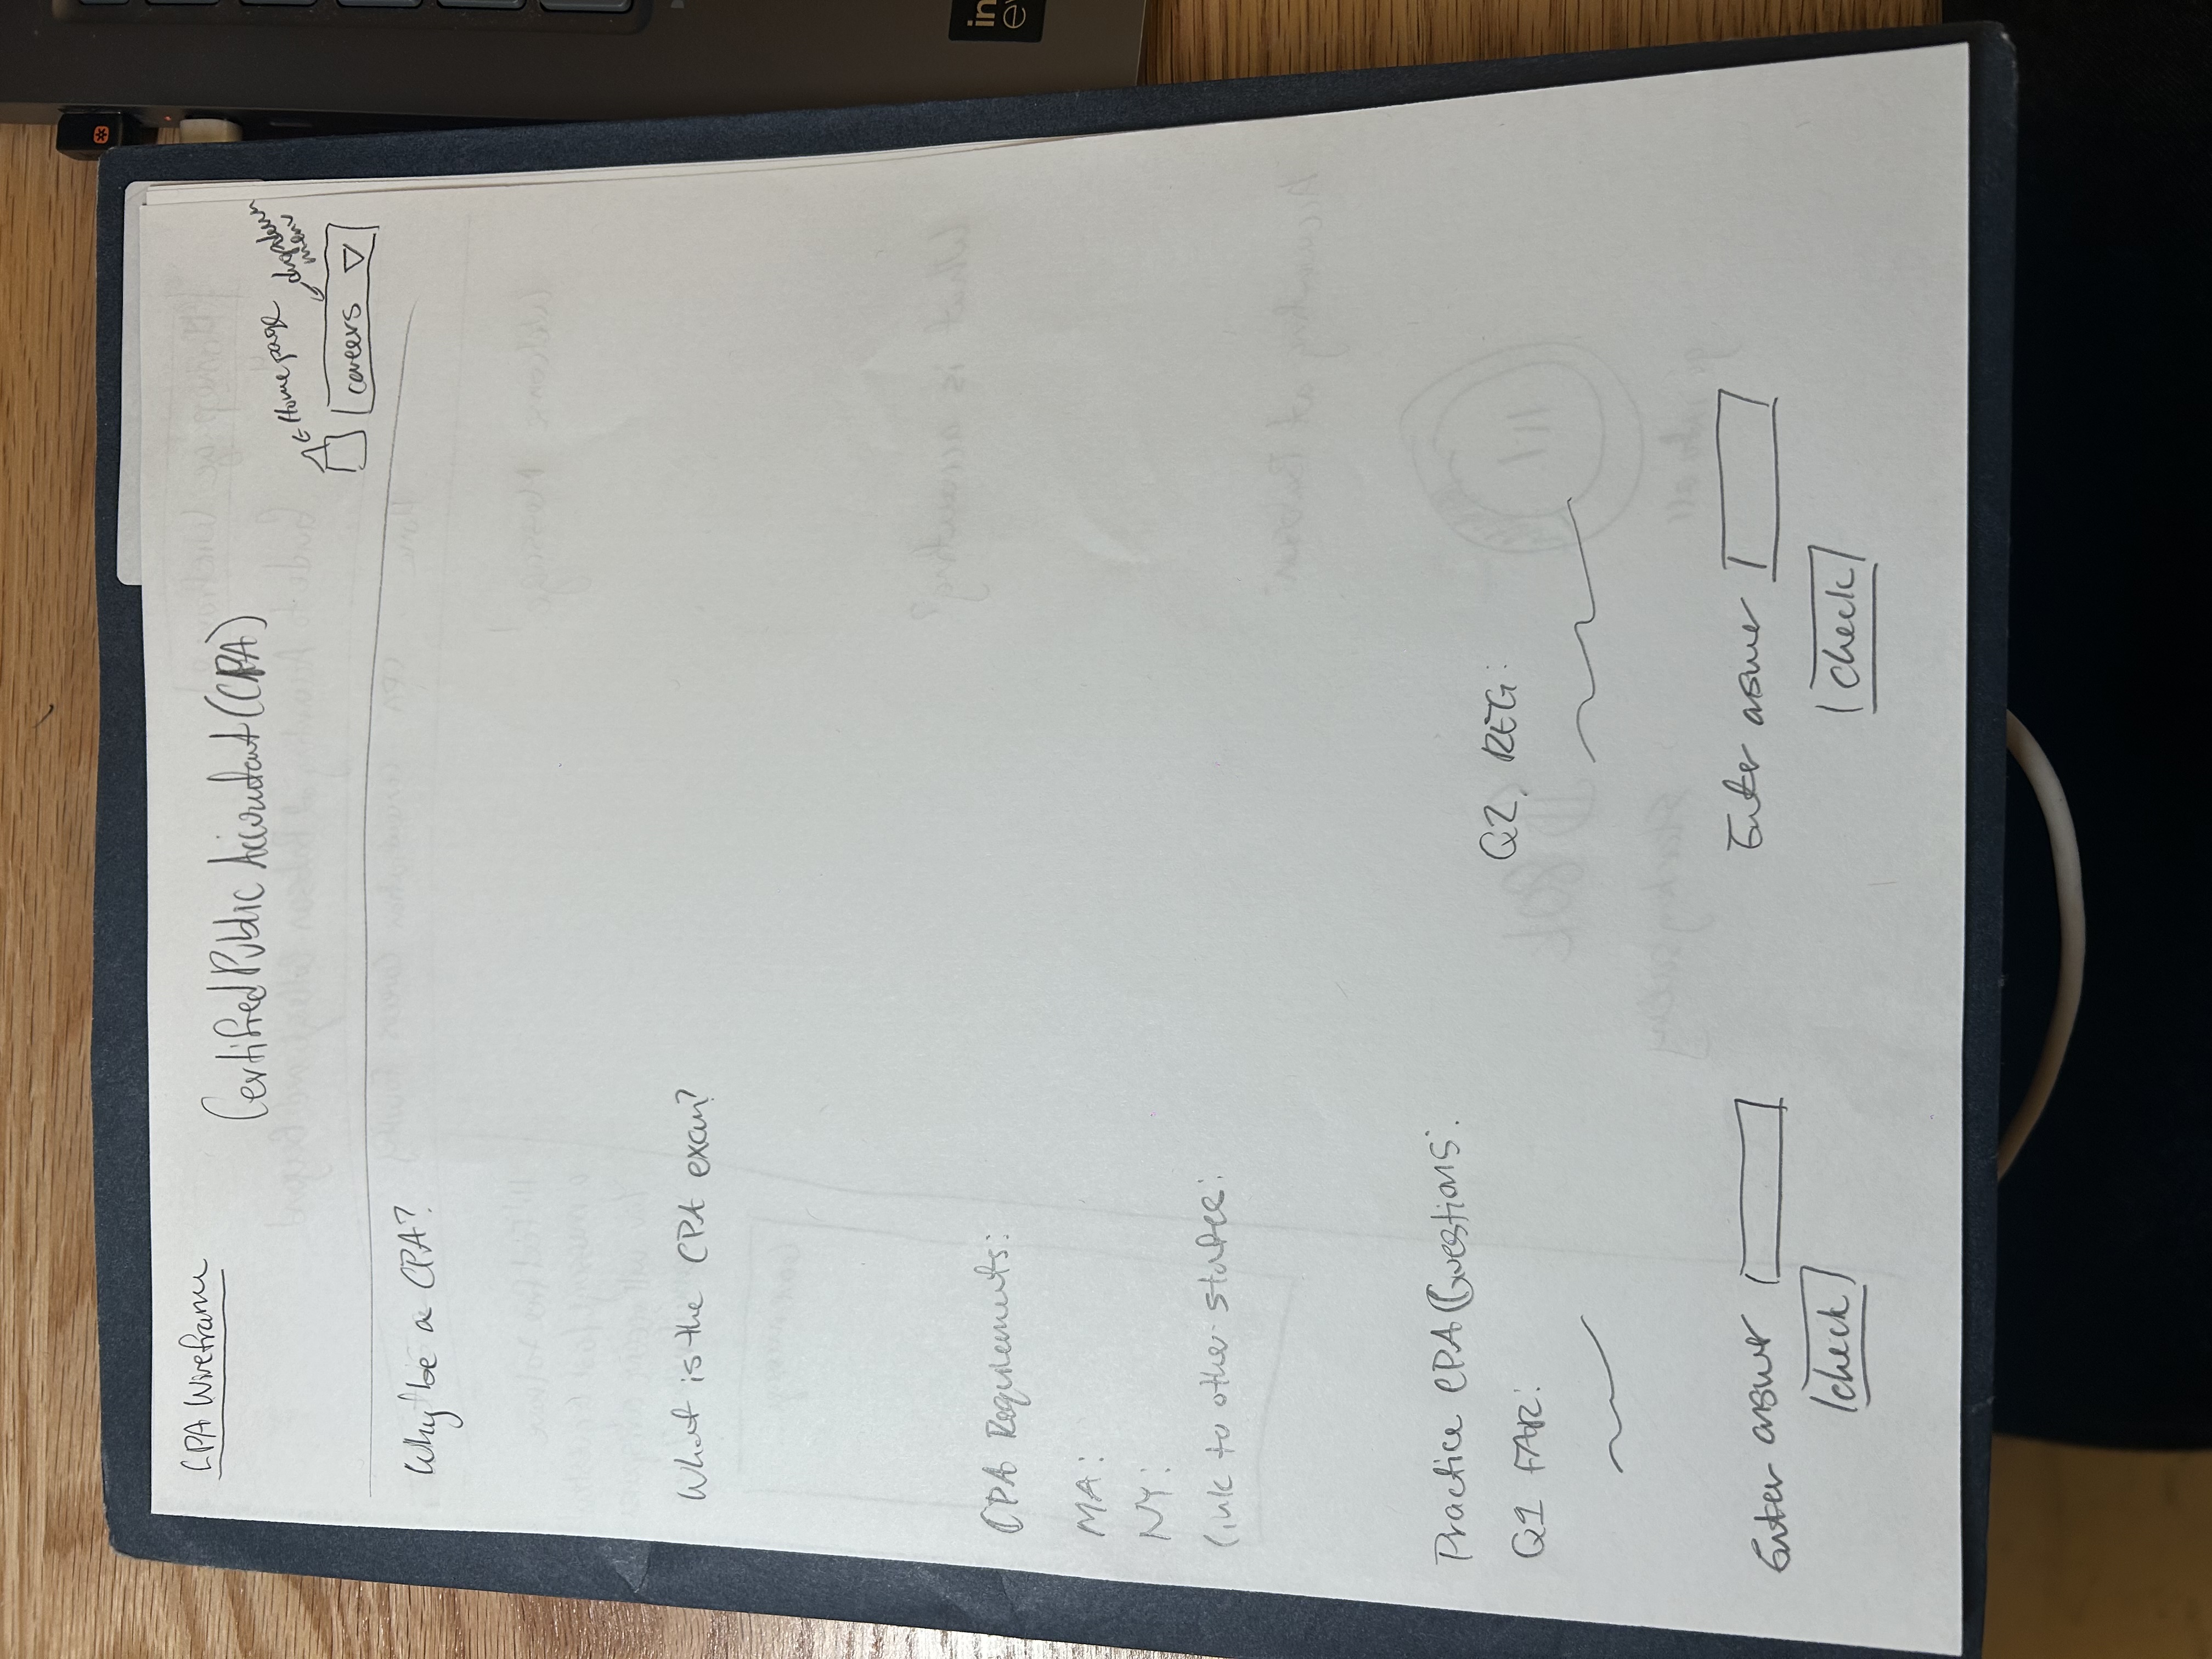 CPA Wireframe
Certified Public Accountant (CPA)
← Home page
← dropdown menu
careers
Why be a CPA?
What is the CPA exam?
CPA Requirements:
MA:
NY:
link to other states:
Practice CPA Questions:
Q1 FAR:
Q2 REG:
Enter answer
Enter answer
check
check